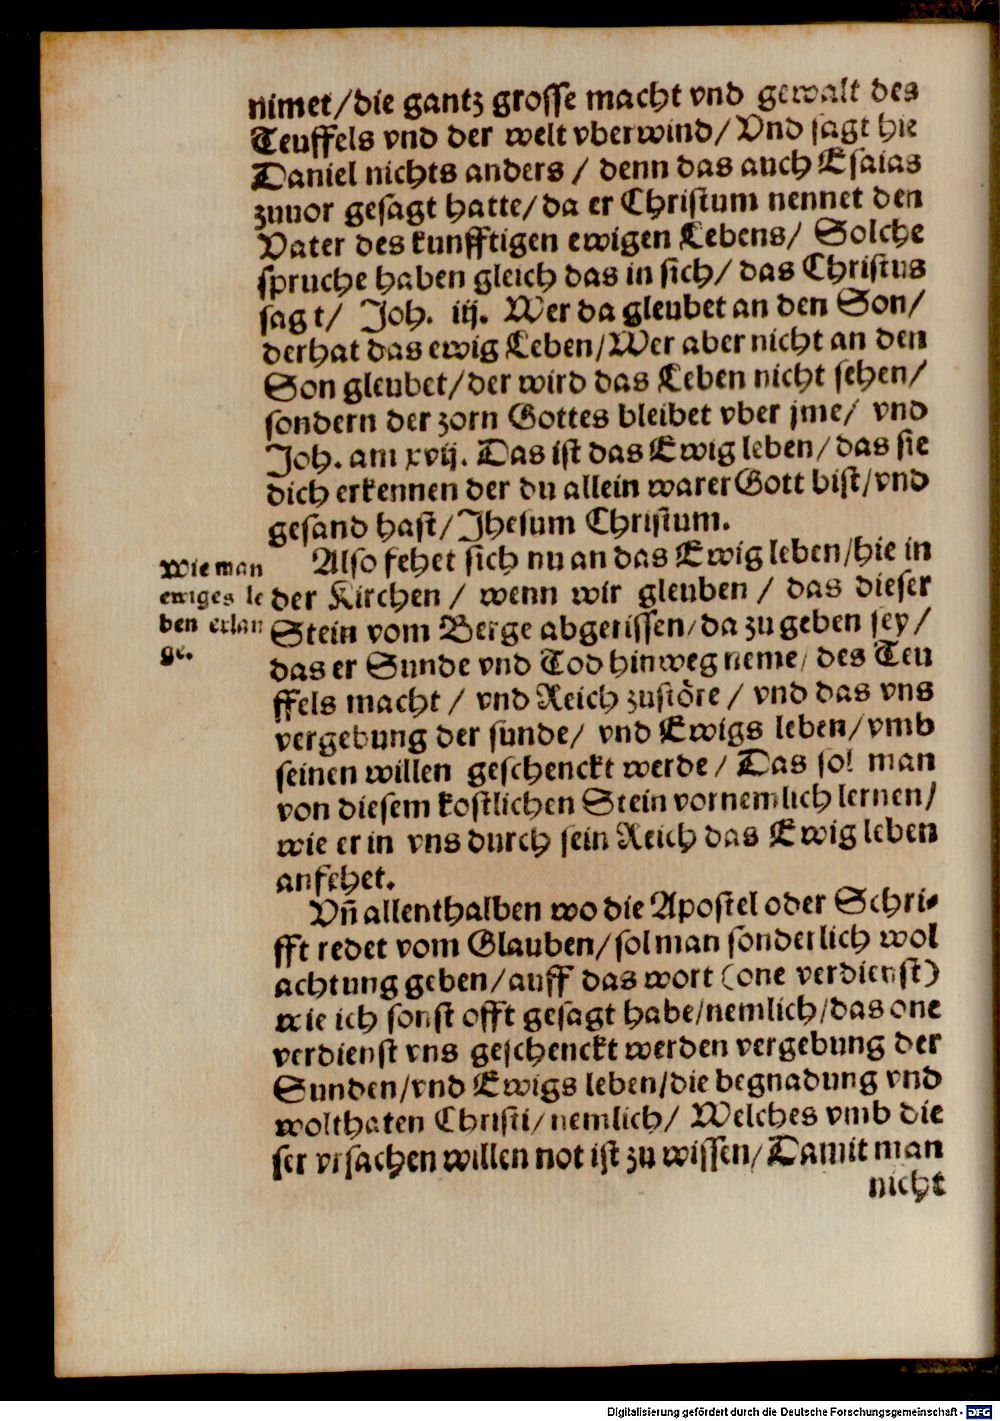 nimet/die gantz grosse macht vnd gewalt des
Teuffels vnd der welt vberwind/Vnd sagt hie
Daniel nichts anders / denn das auch Esaias
zuuor gesagt hatte/da er Christum nennet den
Vater des kunfftigen ewigen Lebens/ Solche
spruche haben gleich das in sich/ das Christus
sagt/ Joh. iij. Wer da gleubet an den Son/
derhat das ewig Leben/Wer aber nicht an den
Son gleubet/der wird das Leben nicht sehen/
sondern der zorn Gottes bleibet vber jme/ vnd
Joh. am xvij. Das ist das Ewig leben/das sie
dich erkennen der du allein warer Gott bist/vnd
gesand hast/Jhesum Christum.
Wie man
ewiges le
ben erlan
ge.
Also fehet sich nu an das Ewig leben/hie in
der Kirchen / wenn wir gleuben / das dieser
Stein vom Berge abgerissen/da zu geben sey/
das er Sunde vnd Tod hinweg neme/ des Teu
ffels macht / vnd Reich zustöre / vnd das vns
vergebung der sunde/ vnd Ewigs leben/vmb
seinen willen geschenckt werde / Das sol man
von diesem kostlichen Stein vornemlich lernen/
wie er in vns durch sein Reich das Ewig leben
anfehet.
Vñ allenthalben wo die Apostel oder Schri⸗
fft redet vom Glauben/sol man sonderlich wol
achtung geben/auff das wort (one verdienst)
wie ich sonst offt gesagt habe/nemlich/das one
verdienst vns geschenckt werden vergebung der
Sunden/vnd Ewigs leben/die begnadung vnd
wolthaten Christi/nemlich/ Welches vmb die
ser vrsachen willen not ist zu wissen/Damit man
nicht
Digitalisierung gefördert durch die Deutsche Forschungsgemeinschaft - DFG